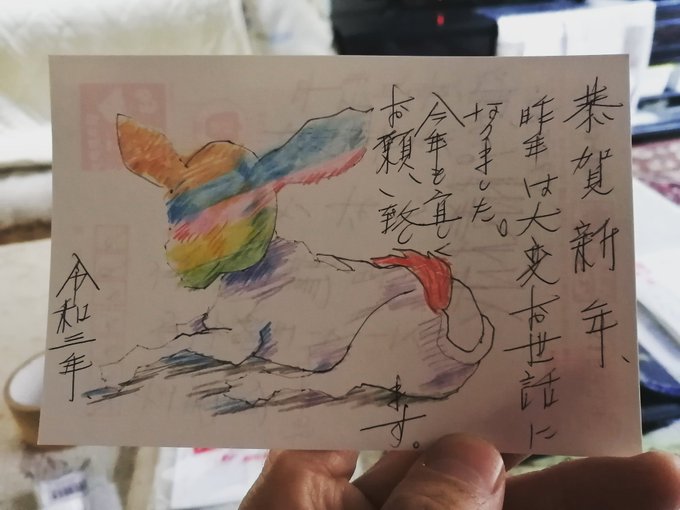 恭賀新年、
昨年は大変お世話に
なりました。
今年も宜しく
お願い致し
ます。
令和三年